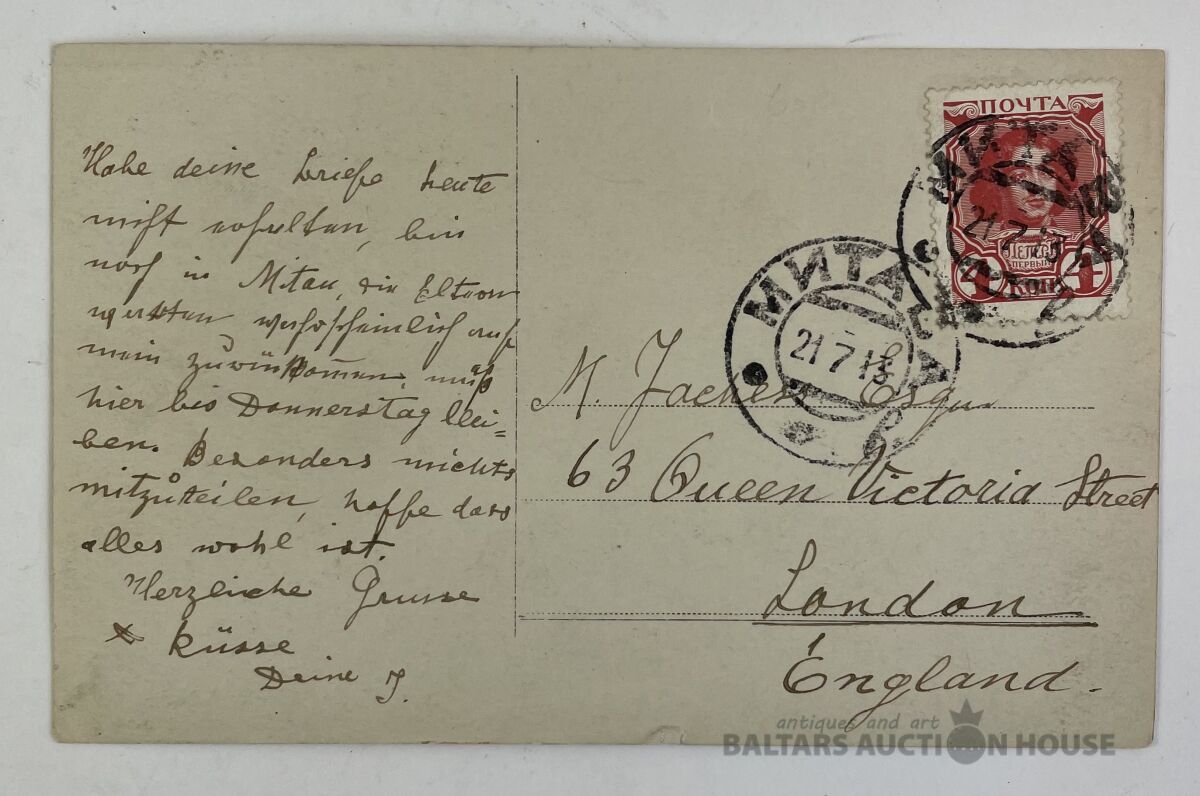 Habe deine briefe heute
nicht erhalten, bin
noch in Mitau, die Eltern
werden wahrscheinlich auf
mein zurückkommen, muß
hier bis Donnerstag blei=
ben. Besonders nichts
mitzuteilen, hoffe dass
alles wohl ist.
Herzliche Grüsse
& küsse
Deine J.
ПОЧТА
ПЕТРЪ I
ПЕРВЫЙ
4 КОП 4
МИТАВА
21 7 13
МИТАВА
21 7 13
M. Jackess Esqu
63 Queen Victoria Street
London
England.
antiques and art
BALTARS AUCTION HOUSE